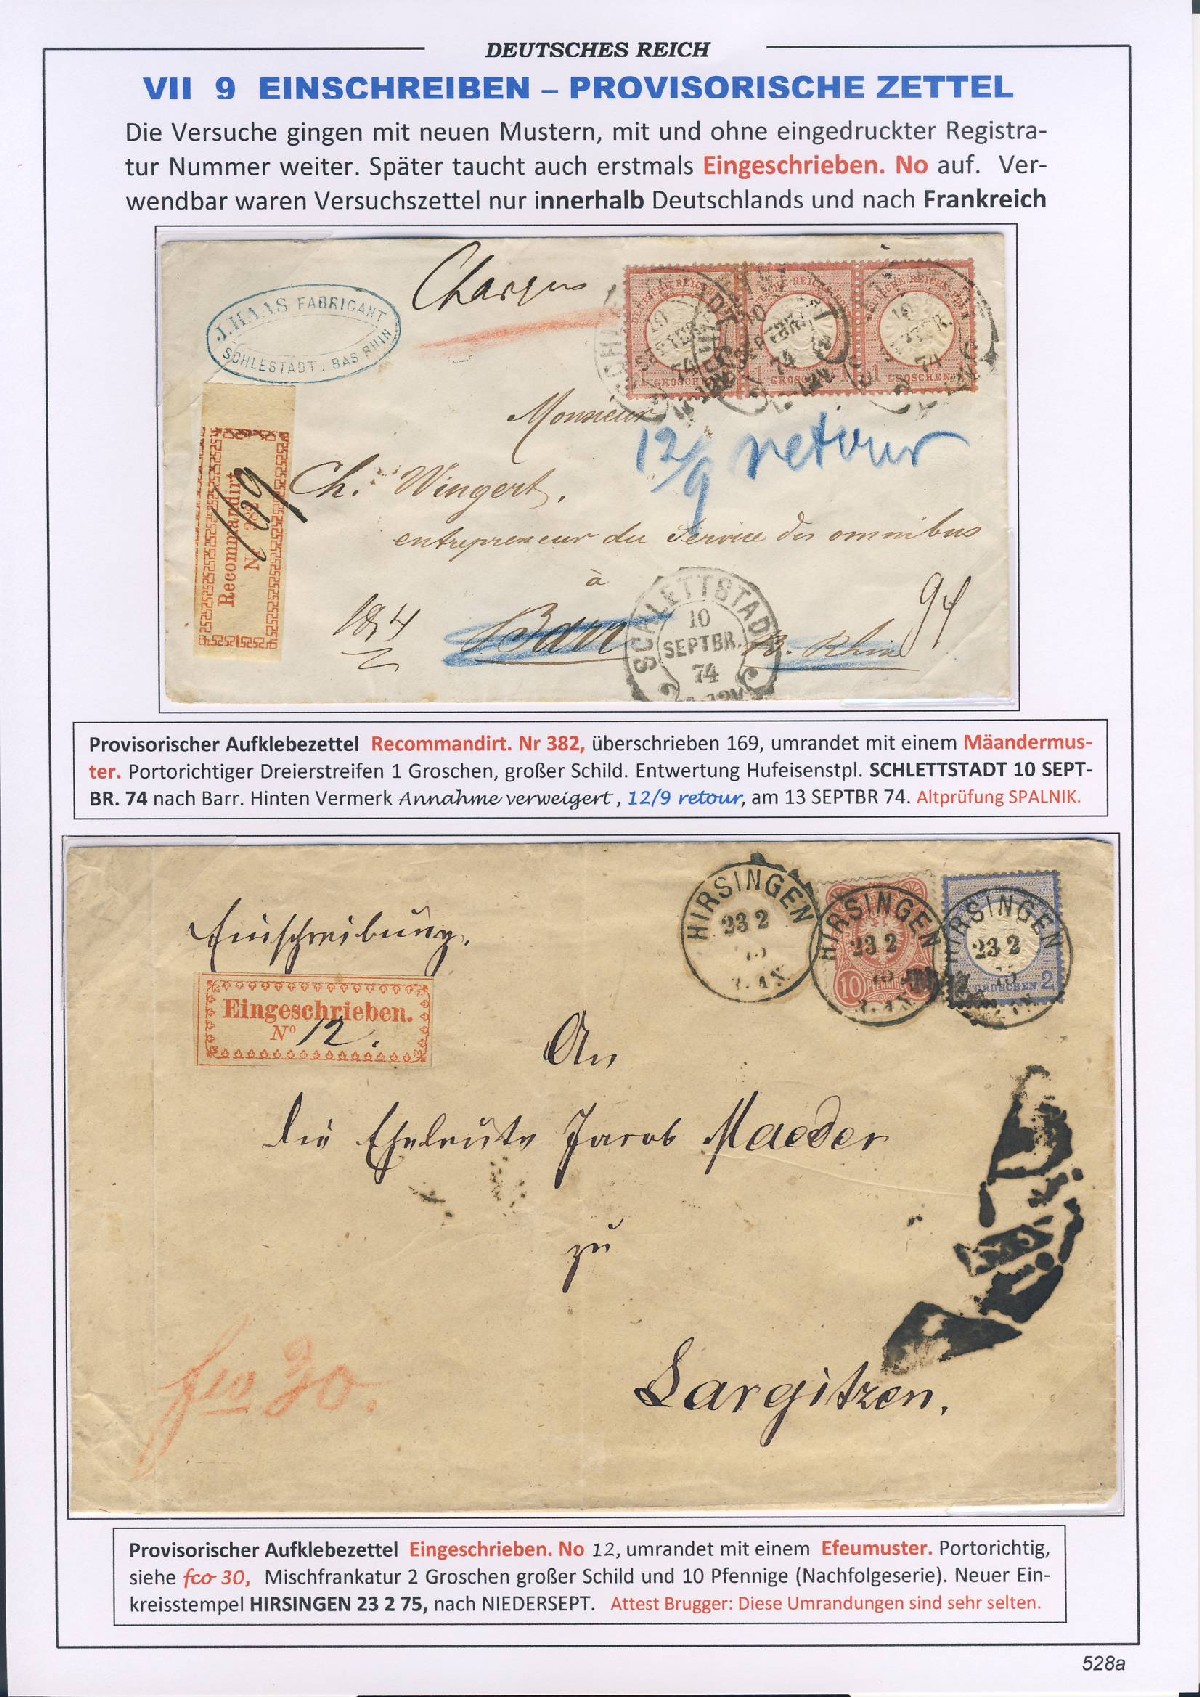 DEUTSCHES REICH
VII 9 EINSCHREIBEN – PROVISORISCHE ZETTEL
Die Versuche gingen mit neuen Mustern, mit und ohne eingedruckter Registra-
tur Nummer weiter. Später taucht auch erstmals Eingeschrieben. No auf. Ver-
wendbar waren Versuchszettel nur innerhalb Deutschlands und nach Frankreich
J. HAAS FABRICANT
SCHLESTADT. BAS RHIN
Recommandirt
169
Monsieur
12/9 retour
Ch. Wingert,
entrepreneur du Service des omnibus
à
Barr
B. Rhin
94
SCHLETTSTADT
10
SEPTBR.
74
Provisorischer Aufklebezettel Recommandirt. Nr 382, überschrieben 169, umrandet mit einem Mäandermus-
ter. Portorichtiger Dreierstreifen 1 Groschen, großer Schild. Entwertung Hufeisenstpl. SCHLETTSTADT 10 SEPT-
BR. 74 nach Barr. Hinten Vermerk Annahme verweigert , 12/9 retour, am 13 SEPTBR 74. Altprüfung SPALNIK.
HIRSINGEN
23 2
HIRSINGEN
23 2
10
HIRSINGEN
23 2
GROSCHEN 2
Einschreibung.
Eingeschrieben.
No 12.
An
die Eheleute Jacob Maeder
zu
Largitzen.
fco 30.
Provisorischer Aufklebezettel Eingeschrieben. No 12, umrandet mit einem Efeumuster. Portorichtig,
siehe fco 30, Mischfrankatur 2 Groschen großer Schild und 10 Pfennige (Nachfolgeserie). Neuer Ein-
kreisstempel HIRSINGEN 23 2 75, nach NIEDERSEPT. Attest Brugger: Diese Umrandungen sind sehr selten.
528a